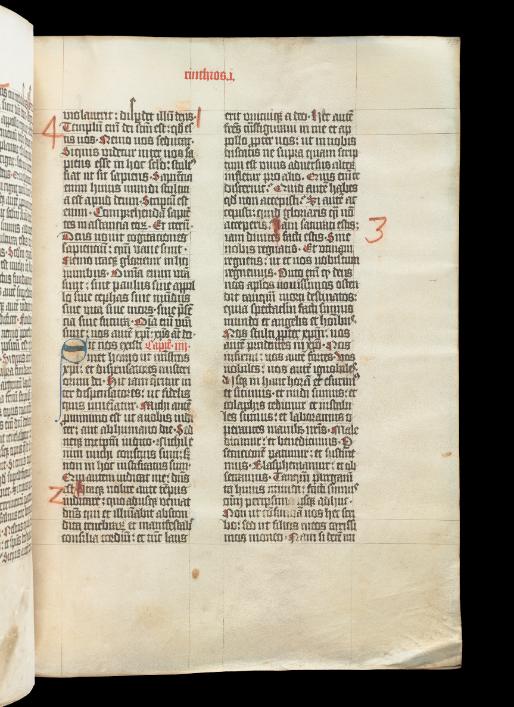 rinthios.i.
violaverit: disp̄det illū deus.
Templū enī dei sc̄m est: qḋ es
tis vos. Nemo vos seducat.
Siquis videtur inter vos sa
piens esse in hoc sclō: stult
fiat ut sit sapiens. Sapientia
enim huius mundi stultici
a est apud deum. Scriptū est
enim. Comprehendā sapiē
tes in astucia eoꝝ. Et iteꝝ.
Deus novit cogitationes
sapientiū: qm̄ vane sunt.
Nemo itaqꝫ glorietur in ho
minibus. Omīa enim vr̄a
sunt: sive paulus sive apol
lo sive cephas sive mūdus
sive vita sive mors. sive p̄se
cia sive futura. Om̄ia enī vr̄a
sunt: vos autē xp̄i: xp̄s aūt dei.
Sic nos existi Capi. iiij.
met homo ut ministros
xp̄i: et dispensatores misteri
orum dei. Hic iam queritur in
ter dispensatores: ut fidelis
quis inveniatur. Michi autē
pro minimo est ut a vobis iudi
cer: aut ab humano die. Sed
neqꝫ meipm̄ iudico. Nichil e
nim michi conscius sum: sed
non in hoc iustificatus sum.
Qui autem iudicat me: dn̄s
est. Itaqꝫ nolite ante tēpus
iudicare: quoadusqꝫ veniat
dn̄s qui et illuminabit abscon
dita tenebraꝝ: et manifestabit
consilia cordiū: et tūc laus
erit unicuiqꝫ a deo. Hec autē
frēs trāsfiguravi in me et ap
pollo ꝓpter vos: ut in nobis
discatis ne supra quam scrip
tum est unus adversus alterū
infletur pro alio. Quis enī te
discernit? Quid autē habes
qḋ non accepisti? Si autē ac
cepisti: quid gloriaris q̄si nō
acceperis? Iam saturati estis:
iam divites facti estis. Sine
nobis regnatis. Et utinam
regnetis: ut et nos vobiscum
regnemus. Puto enī qḋ deus
nos apl̄os novissimos osten
dit tanqm̄ morti destinatos:
quia spectaculū facti sumus
mundo et angelis et hoībus.
Nos stulti ꝓpter xp̄m: vos
autē prudentes in xp̄o. Nos
infirmi: vos autē fortes. Vos
nobiles: nos autē ignobiles.
Usqꝫ in hanc horā et esurimꝰ
et sitimus: et nudi sumus: et
colaphis cedimur et instabi
les sumus: et laboramus o
perantes manibꝫ nr̄is. Male
dicimur: et benedicimus. P
secutionē patimur: et sustine
mus. Blasphemamur: et ob
secramus. Tanqm̄ purgamē
ta huius mundi: facti sumꝰ
oīm peripsima usqꝫ adhuc.
Non ut cōfundam vos hec scri
bo: sed ut filios meos carissi
mos moneo. Nam si decē mi
4
1
3
2